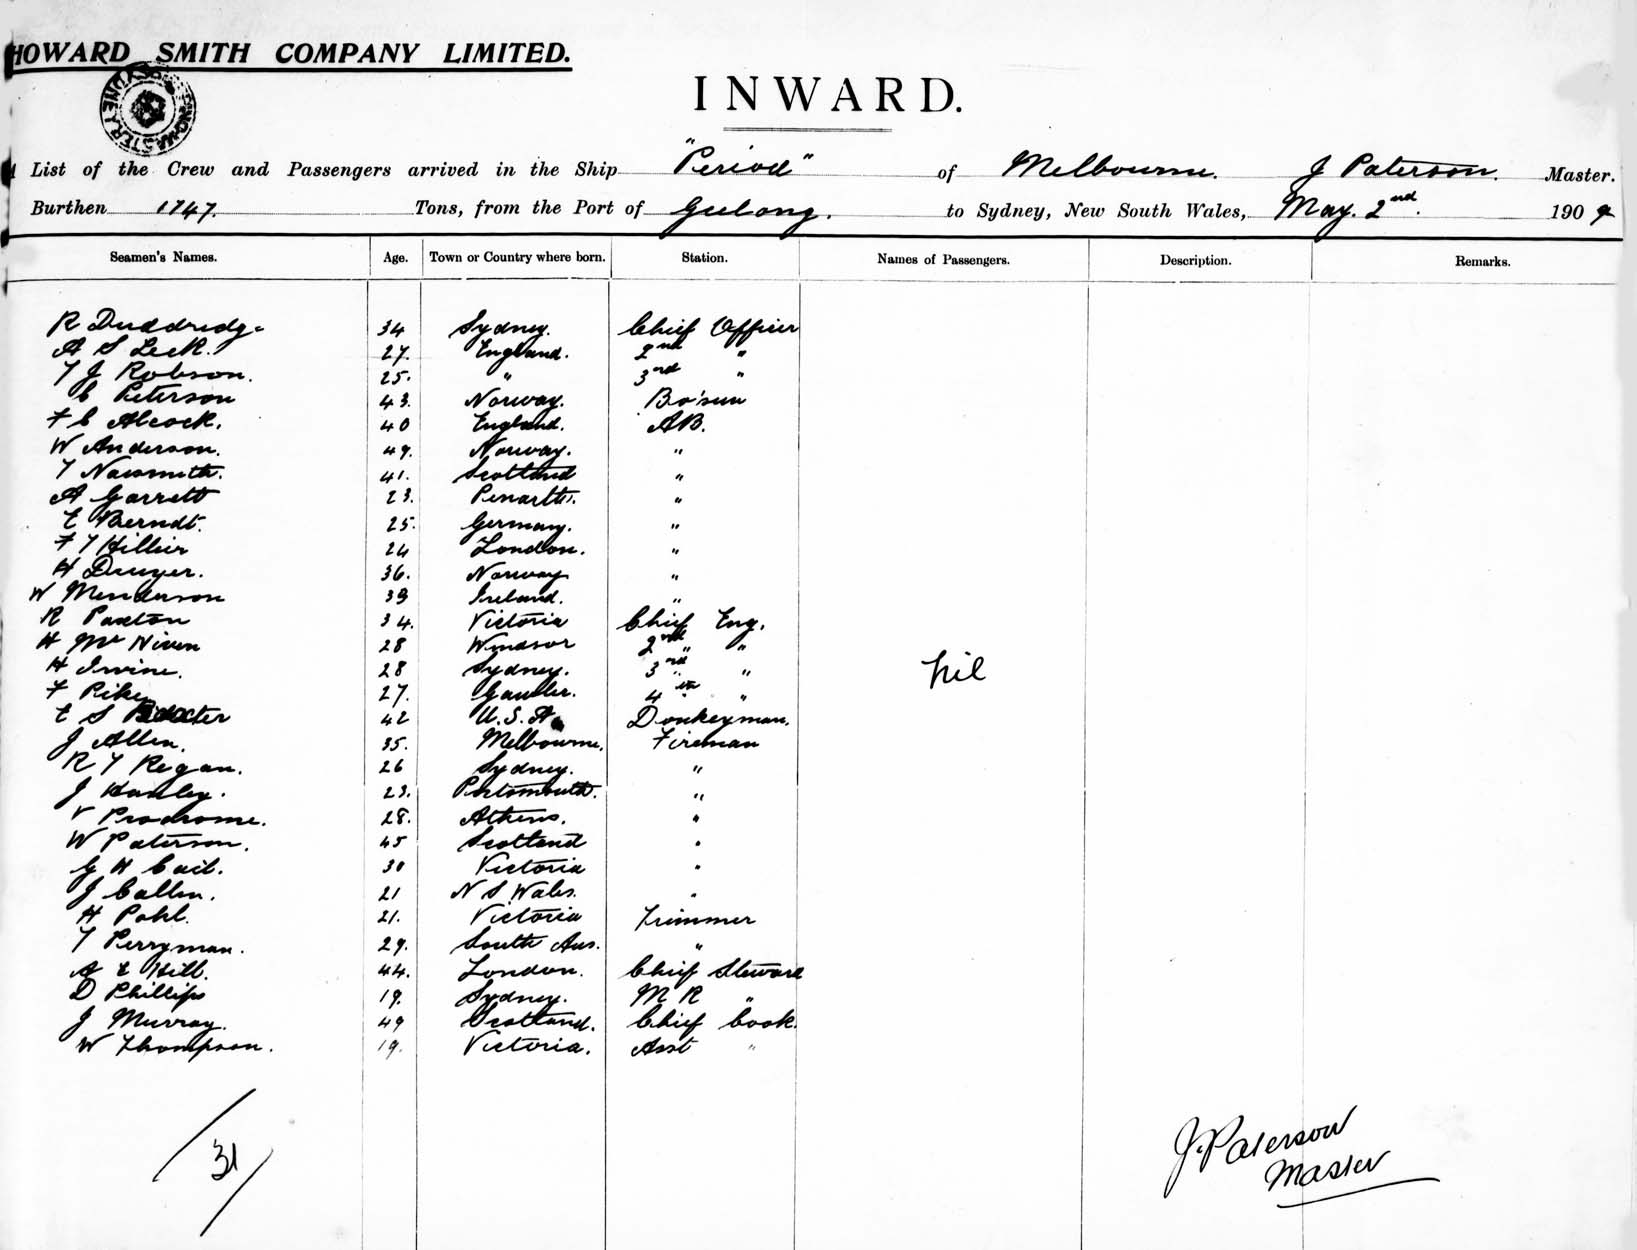 HOWARD SMITH COMPANY LIMITED.
INWARD.
List of the Crew and Passengers arrived in the Ship "Period" of Melbourne. J Paterson. Master.
Burthen 1747. Tons, from the Port of Geelong. to Sydney, New South Wales, May. 2nd. 1909
Seamen's Names. Age. Town or Country where born. Station. Names of Passengers. Description. Remarks.
R Duddridge 34 Sydney. Chief Officer
A S Leck. 27. England. 2nd "
T J Robson. 25. " 3rd "
C Peterson 43. Norway. Bo'sun
F C Alcock. 40 England. AB.
W Anderson. 49. Norway. "
T Naismith. 41. Scotland "
A Garrett 23. Penarth. "
E Berndt. 25. Germany. "
F T Hillier 24 London. "
H Dwyer. 36. Norway "
W Menderson 39 Ireland. "
R Paxton 34. Victoria Chief Eng.
H McNiven 28 Windsor 2nd " "
H Irvine. 28 Sydney. 3rd " "
F Pike 27. Gawler. 4th "
nil
E S Baxter 42 U.S.A. Donkeyman.
J Allen. 35. Melbourne. Fireman
R T Regan. 26 Sydney. "
J Hanley. 23. Portsmouth. "
V Prodrome. 28. Athens. "
W Paterson. 45 Scotland "
G H Cail. 30 Victoria "
J Callen. 21 N S Wales. "
H Pohl. 21. Victoria Trimmer
T Perryman. 29. South Aus. "
A E Hill. 44. London. Chief Steward
D Phillips 19. Sydney. M R "
J Murray. 49 Scotland. Chief Cook.
W Thompson. 19. Victoria. Asst "
31
J. Paterson
Master